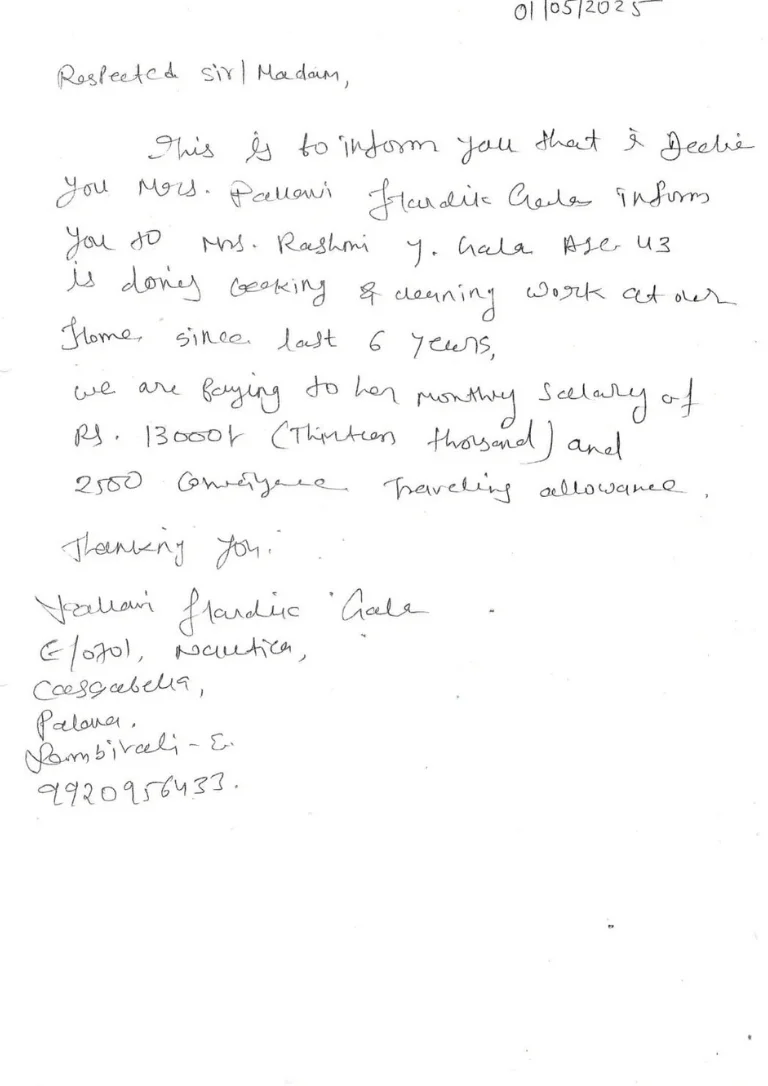 01/05/2025
Respected Sir/Madam,
This is to inform you that I
you Mrs. Pallavi Hardik Gala inform
you to Mrs. Rashmi Y. Gala Age 43
is doing cooking & cleaning work at our
Home, since last 6 years,
we are paying to her monthly salary of
RS. 13000/- (Thirteen thousand) and
2500 Conveyance Traveling allowance.
Thanking you.
Pallavi Hardik Gala
E/0701, Nautica,
Casabella,
Palava.
Dombivali - E.
9920956433.